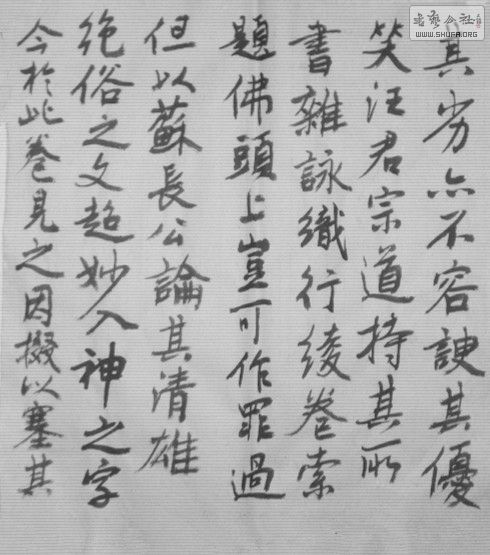 其劣亦不容諛其優
笑汪君宗道持其所
書雜詠織行綾卷索
題佛頭上豈可作罪過
但以蘇長公論其清雄
絶俗之文超妙入神之字
今於此卷見之因掇以塞其
書藝公社
WWW.SHUFA.ORG